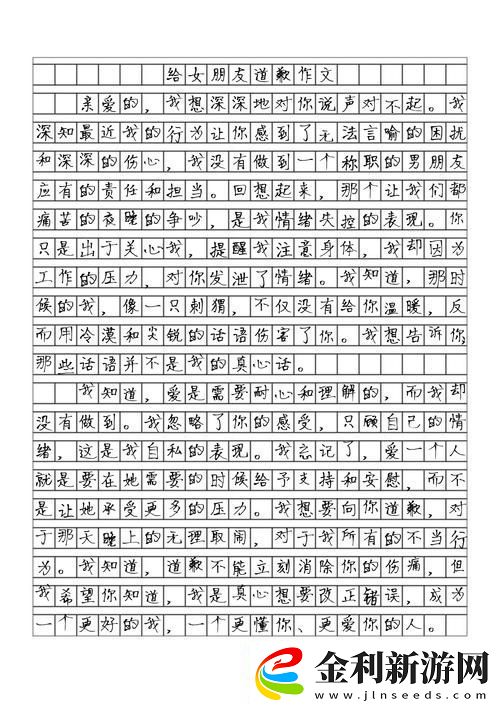 给女朋友道歉作文
亲爱的，我想深深地对你说声对不起。我
深知最近我的行为让你感到了无法言喻的困扰
和深深的伤心，我没有做到一个称职的男朋友
应有的责任和担当。回想起来，那个让我们都
痛苦的夜晚的争吵，是我情绪失控的表现。你
只是出于关心我，提醒我注意身体，我却因为
工作的压力，对你发泄了情绪。我知道，那时
候的我，像一只刺猬，不仅没有给你温暖，反
而用冷漠和尖锐的话语伤害了你。我想告诉你，
那些话语并不是我的真心话。
我知道，爱是需要耐心和理解的，而我却
没有做到。我忽略了你的感受，只顾自己的情
绪，这是我自私的表现。我忘记了，爱一个人
就是要在她需要的时候给予支持和安慰，而不
是让她承受更多的压力。我想要向你道歉，对
于那天晚上的无理取闹，对于我所有的不当行
为。我知道，道歉不能立刻消除你的伤痛，但
我希望你知道，我是真心想要改正错误，成为
一个更好的我，一个更懂你、更爱你的人。
金利新游网
www.jlnseeds.com